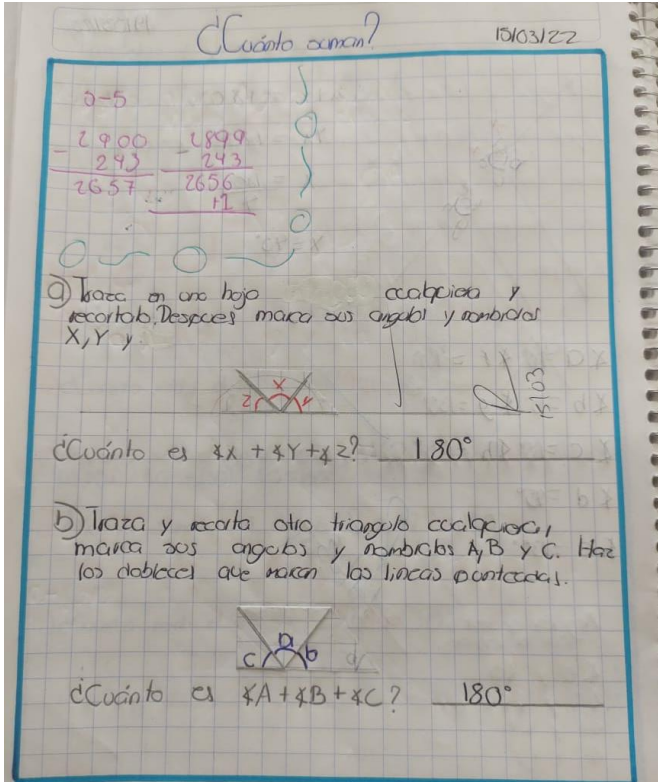 ¿Cuánto suman?
15/03/22
0-5
2900
- 243
2657
2899
- 243
2656
+1
a) Traza en una hoja cualquier y
recortalo. Despues marca sus angulos y nombralos
X, Y y
z x y
15/03
¿Cuánto es ∡X + ∡Y + ∡Z? 180°
b) Traza y recorta otro triangulo cualquiera,
marca sus angulos y nombralos A, B y C. Haz
los dobleces que marcan las lineas punteadas.
c a b
¿Cuánto es ∡A + ∡B + ∡C? 180°